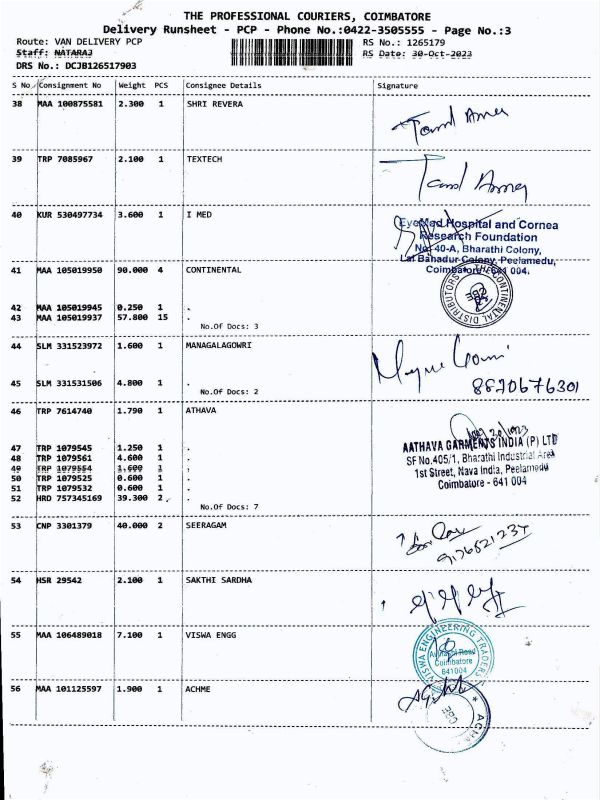 THE PROFESSIONAL COURIERS, COIMBATORE
Delivery Runsheet - PCP - Phone No.:0422-3505555 - Page No.:3
Route: VAN DELIVERY PCP RS No.: 1265179
Staff: NATARAJ RS Date: 30-Oct-2023
DRS No.: DCJB126517903
S No Consignment No Weight PCS Consignee Details Signature
38 MAA 100875581 2.300 1 SHRI REVERA
39 TRP 7085967 2.100 1 TEXTECH
40 KUR 530497734 3.600 1 I MED
EyeMed Hospital and Cornea
Research Foundation
No: 40-A, Bharathi Colony,
Lal Bahadur Colony, Peelamedu,
Coimbatore - 641 004.
41 MAA 105019950 90.000 4 CONTINENTAL
THE CONTINENTAL DISTRIBUTORS
42 MAA 105019945 0.250 1 .
43 MAA 105019937 57.800 15 .
No.Of Docs: 3
44 SLM 331523972 1.600 1 MANAGALAGOWRI
45 SLM 331531506 4.800 1 .
No.Of Docs: 2
8820676301
46 TRP 7614740 1.790 1 ATHAVA
47 TRP 1079545 1.250 1 .
48 TRP 1079561 4.600 1 .
49 TRP 1079554 1.600 1 .
50 TRP 1079525 0.600 1 .
51 TRP 1079532 0.600 1 .
52 HRD 757345169 39.300 2 .
No.Of Docs: 7
AATHAVA GARMENTS INDIA (P) LTD
SF No.405/1, Bharathi Industrial Area
1st Street, Nava India, Peelamedu
Coimbatore - 641 004
53 CNP 3301379 40.000 2 SEERAGAM
9176521234
54 HSR 29542 2.100 1 SAKTHI SARDHA
55 MAA 106489018 7.100 1 VISWA ENGG
VISWA ENGINEERING TRADERS
Avinashi Road
Coimbatore
641004
56 MAA 101125597 1.900 1 ACHME